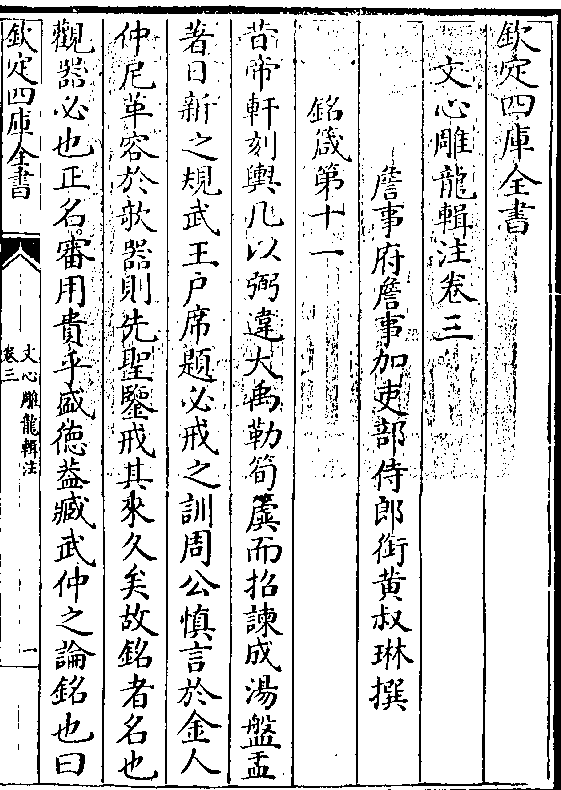 欽定四庫全書
文心雕龍輯注卷三
詹事府詹事加吏部侍郎銜黄叔琳撰
銘箴第十一
昔帝軒刻輿几以弼違大禹勒筍虡而招諫成湯盤盂
著日新之規武王户席題必戒之訓周公慎言於金人
仲尼革容於欹器則先聖鑒戒其來久矣故銘者名也
觀器必也正名審用貴乎盛德葢臧武仲之論銘也曰
欽定四庫全書
文心雕龍輯注
卷三
一